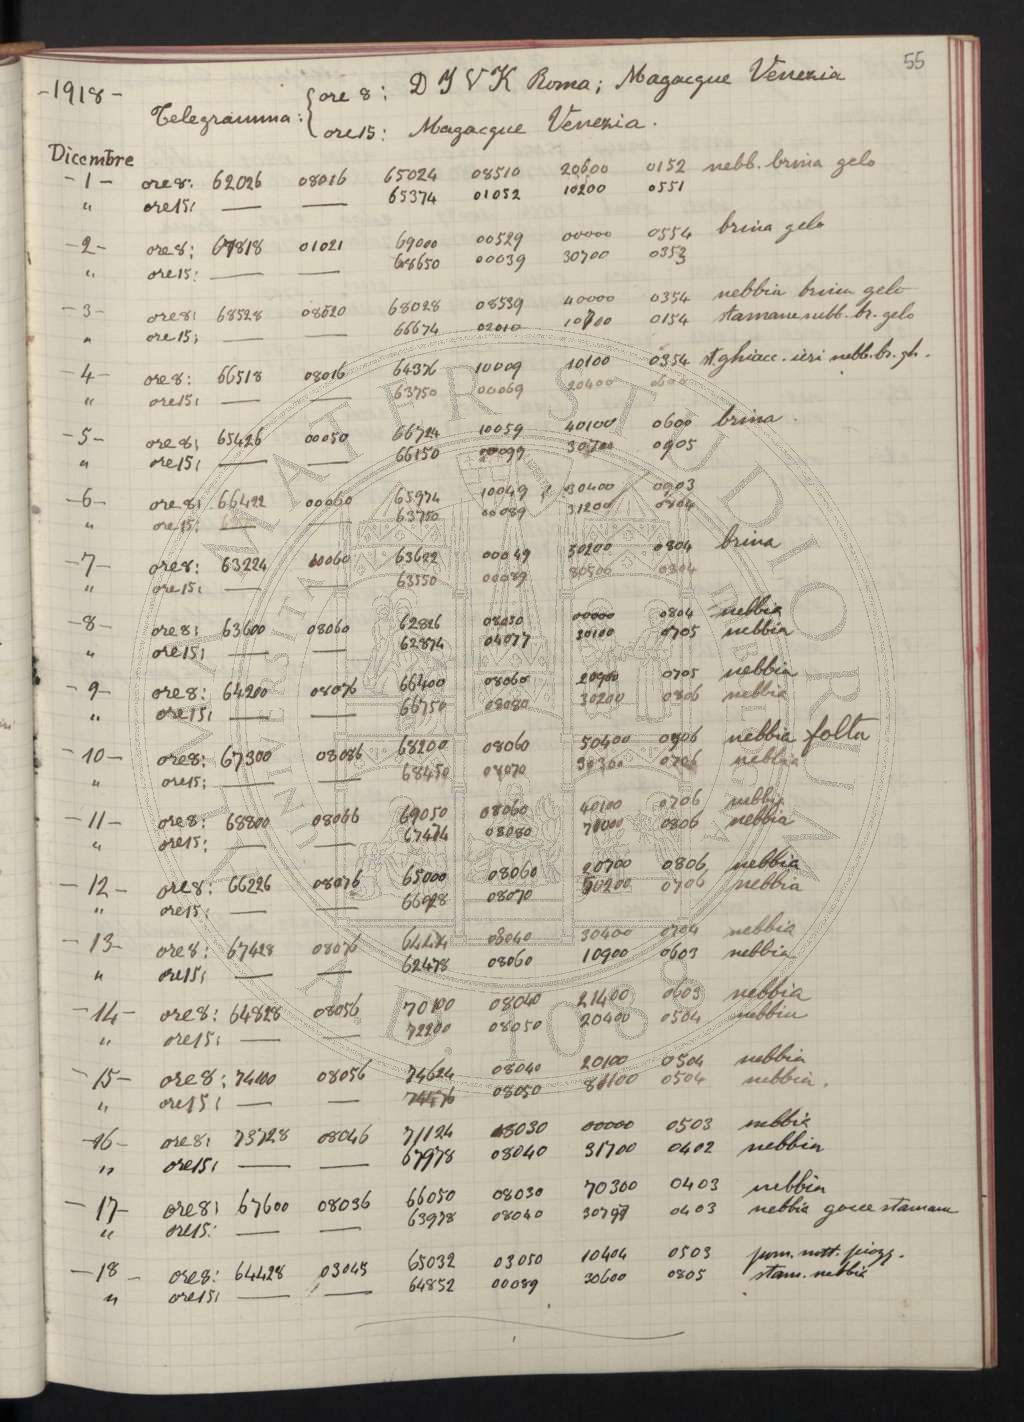 55
-1918-
Telegramma: ore 8: D Y V K Roma; Magacque Venezia
ore15: Magacque Venezia.
Dicembre
-1- ore8: 62026 08016 65024 08510 20600 0152 nebb. brina gelo
" ore15: — — 65374 01052 10200 0551
-2- ore8: 67818 01021 69000 00529 00000 0554 brina gelo
" ore15: — — 68650 00039 30700 0353
-3- ore8: 68528 08020 68028 08539 40000 0354 nebbia brina gelo
" ore15: — — 66674 02010 10700 0154 stamane nebb. br. gelo
-4- ore8: 66518 08016 64376 10009 10100 0354 st. ghiacc. ieri nebb. br. gh.
" ore15: — — 63750 00069 20400 0600
-5- ore8: 65426 00050 66724 10059 40100 0600 brina.
" ore15: — — 66150 00099 30700 0905
-6- ore8: 66422 00060 65974 10049 30400 0903
" ore15: — — 63750 00089 31200 0804
-7- ore8: 63224 00060 63622 00049 30200 0804 brina
" ore15: — — 63550 00089 80500 0304
-8- ore8: 63600 08060 62826 08030 00000 0804 nebbia
" ore15: — — 62874 04077 20100 0705 nebbia
-9- ore8: 64200 08076 66400 08060 20900 0705 nebbia
" ore15: — — 66750 08080 30200 0806 nebbia
-10- ore8: 67300 08086 68200 08060 50400 0906 nebbia folta
" ore15: — — 68450 08070 30300 0706 nebbia
-11- ore8: 68800 08066 69050 08060 40100 0706 nebbia
" ore15: — — 67474 08080 70000 0806 nebbia
-12- ore8: 66226 08076 65000 08060 20700 0806 nebbia
" ore15: — — 66028 08070 50200 0706 nebbia
-13- ore8: 67428 08076 64424 08040 30400 0704 nebbia
" ore15: — — 62478 08060 10900 0603 nebbia
-14- ore8: 64828 08056 70100 08040 21400 0603 nebbia
" ore15: — — 72200 08050 20400 0504 nebbia
-15- ore8: 74100 08056 74624 08040 20100 0504 nebbia
" ore15: — — 08050 81100 0504 nebbia.
-16- ore8: 73728 08046 71124 08030 00000 0503 nebbia
" ore15: — — 67978 08040 31700 0402 nebbia
-17- ore8: 67600 08036 66050 08030 70300 0403 nebbia
" ore15: — — 63978 08040 30799 0403 nebbia gocce stamane
-18- ore8: 64428 03045 65032 03050 10404 0503 pom. nott. piogg.
" ore15: — — 64852 00089 30600 0805 stam. nebbia
ALMA MATER STUDIORUM
A.D. 1088